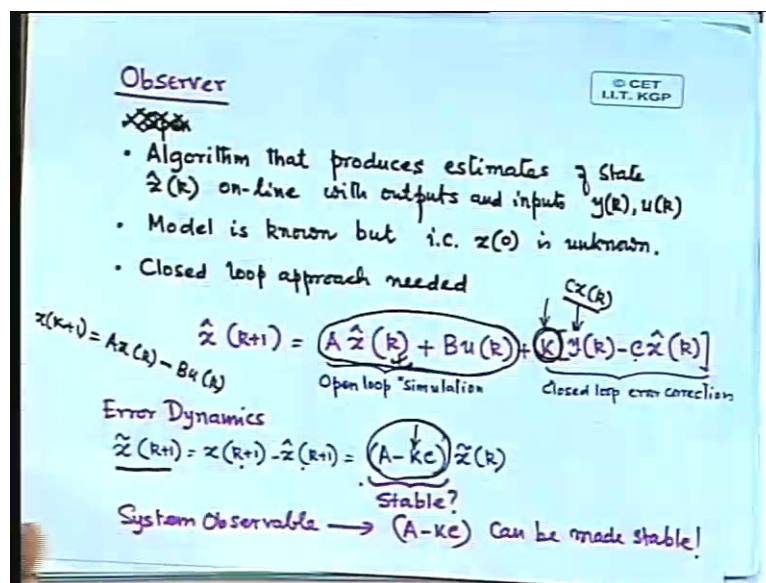 Observer
© CET
I.I.T. KGP
• Algorithm that produces estimates of state
x̂(k) on-line with outputs and inputs y(k), u(k)
• Model is known but i.c. x(0) is unknown.
• Closed loop approach needed
Cx(k)
x(k+1) = Ax(k) - Bu(k)
x̂(k+1) = (A x̂(k) + Bu(k)) + K[y(k) - Cx̂(k)]
Open loop "simulation
Closed loop error correction
Error Dynamics
x̃(k+1) = x(k+1) - x̂(k+1) = (A-KC) x̃(k)
Stable?
System Observable → (A-KC) can be made stable!